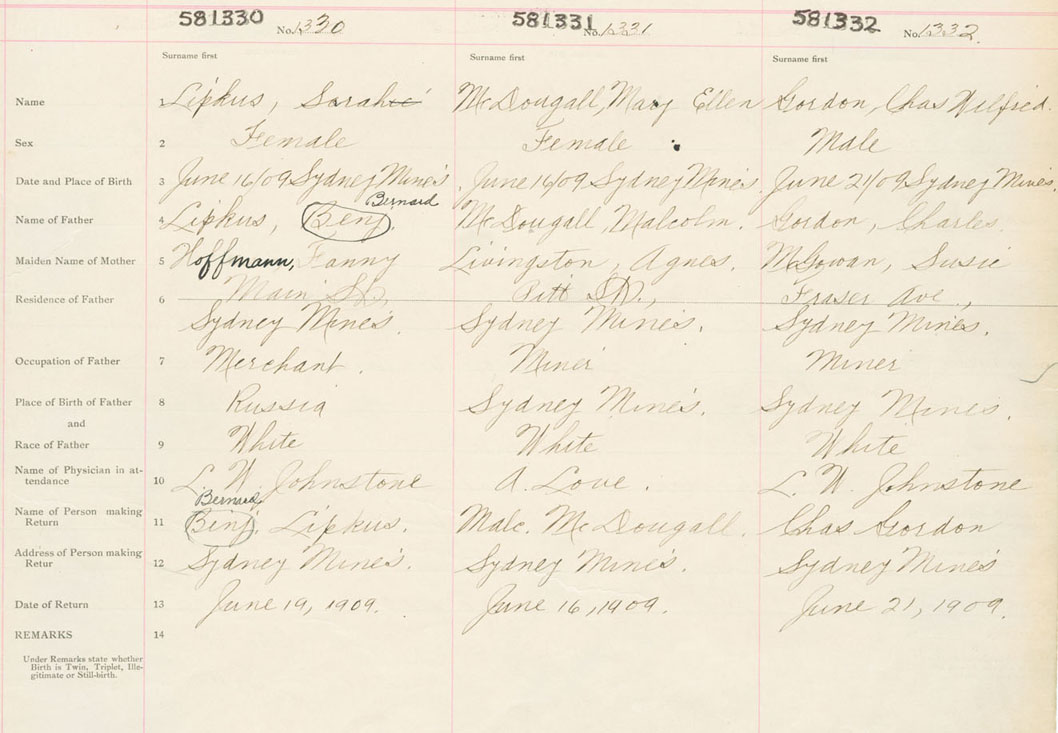 581330 No. 1330 581331 No. 1331 581332 No. 1332.
Surname first Surname first Surname first
Name 1 Lipkus, Sarah McDougall, Mary Ellen Gordon, Chas Wilfred.
Sex 2 Female Female Male
Date and Place of Birth 3 June 16/09 Sydney Mines June 16/09 Sydney Mines. June 21/09 Sydney Mines.
Bernard
Name of Father 4 Lipkus, Benj. McDougall, Malcolm. Gordon, Charles.
Maiden Name of Mother 5 Hoffmann, Fanny Livingston, Agnes. McGowan, Susie
Residence of Father 6 Main St., Pitt St., Fraser Ave.,
Sydney Mines. Sydney Mines. Sydney Mines.
Occupation of Father 7 Merchant. Miner Miner
Place of Birth of Father 8 Russia Sydney Mines. Sydney Mines.
and
Race of Father 9 White White White
Name of Physician in at-
tendance 10 L. W. Johnstone A. Love. L. W. Johnstone
Bernard
Name of Person making
Return 11 Binj. Lipkus. Malc. McDougall. Chas Gordon
Address of Person making
Retur 12 Sydney Mines. Sydney Mines. Sydney Mines
Date of Return 13 June 19, 1909. June 16, 1909. June 21, 1909
REMARKS 14
Under Remarks state whether
Birth is Twin, Triplet, Ille-
gitimate or Still-birth.